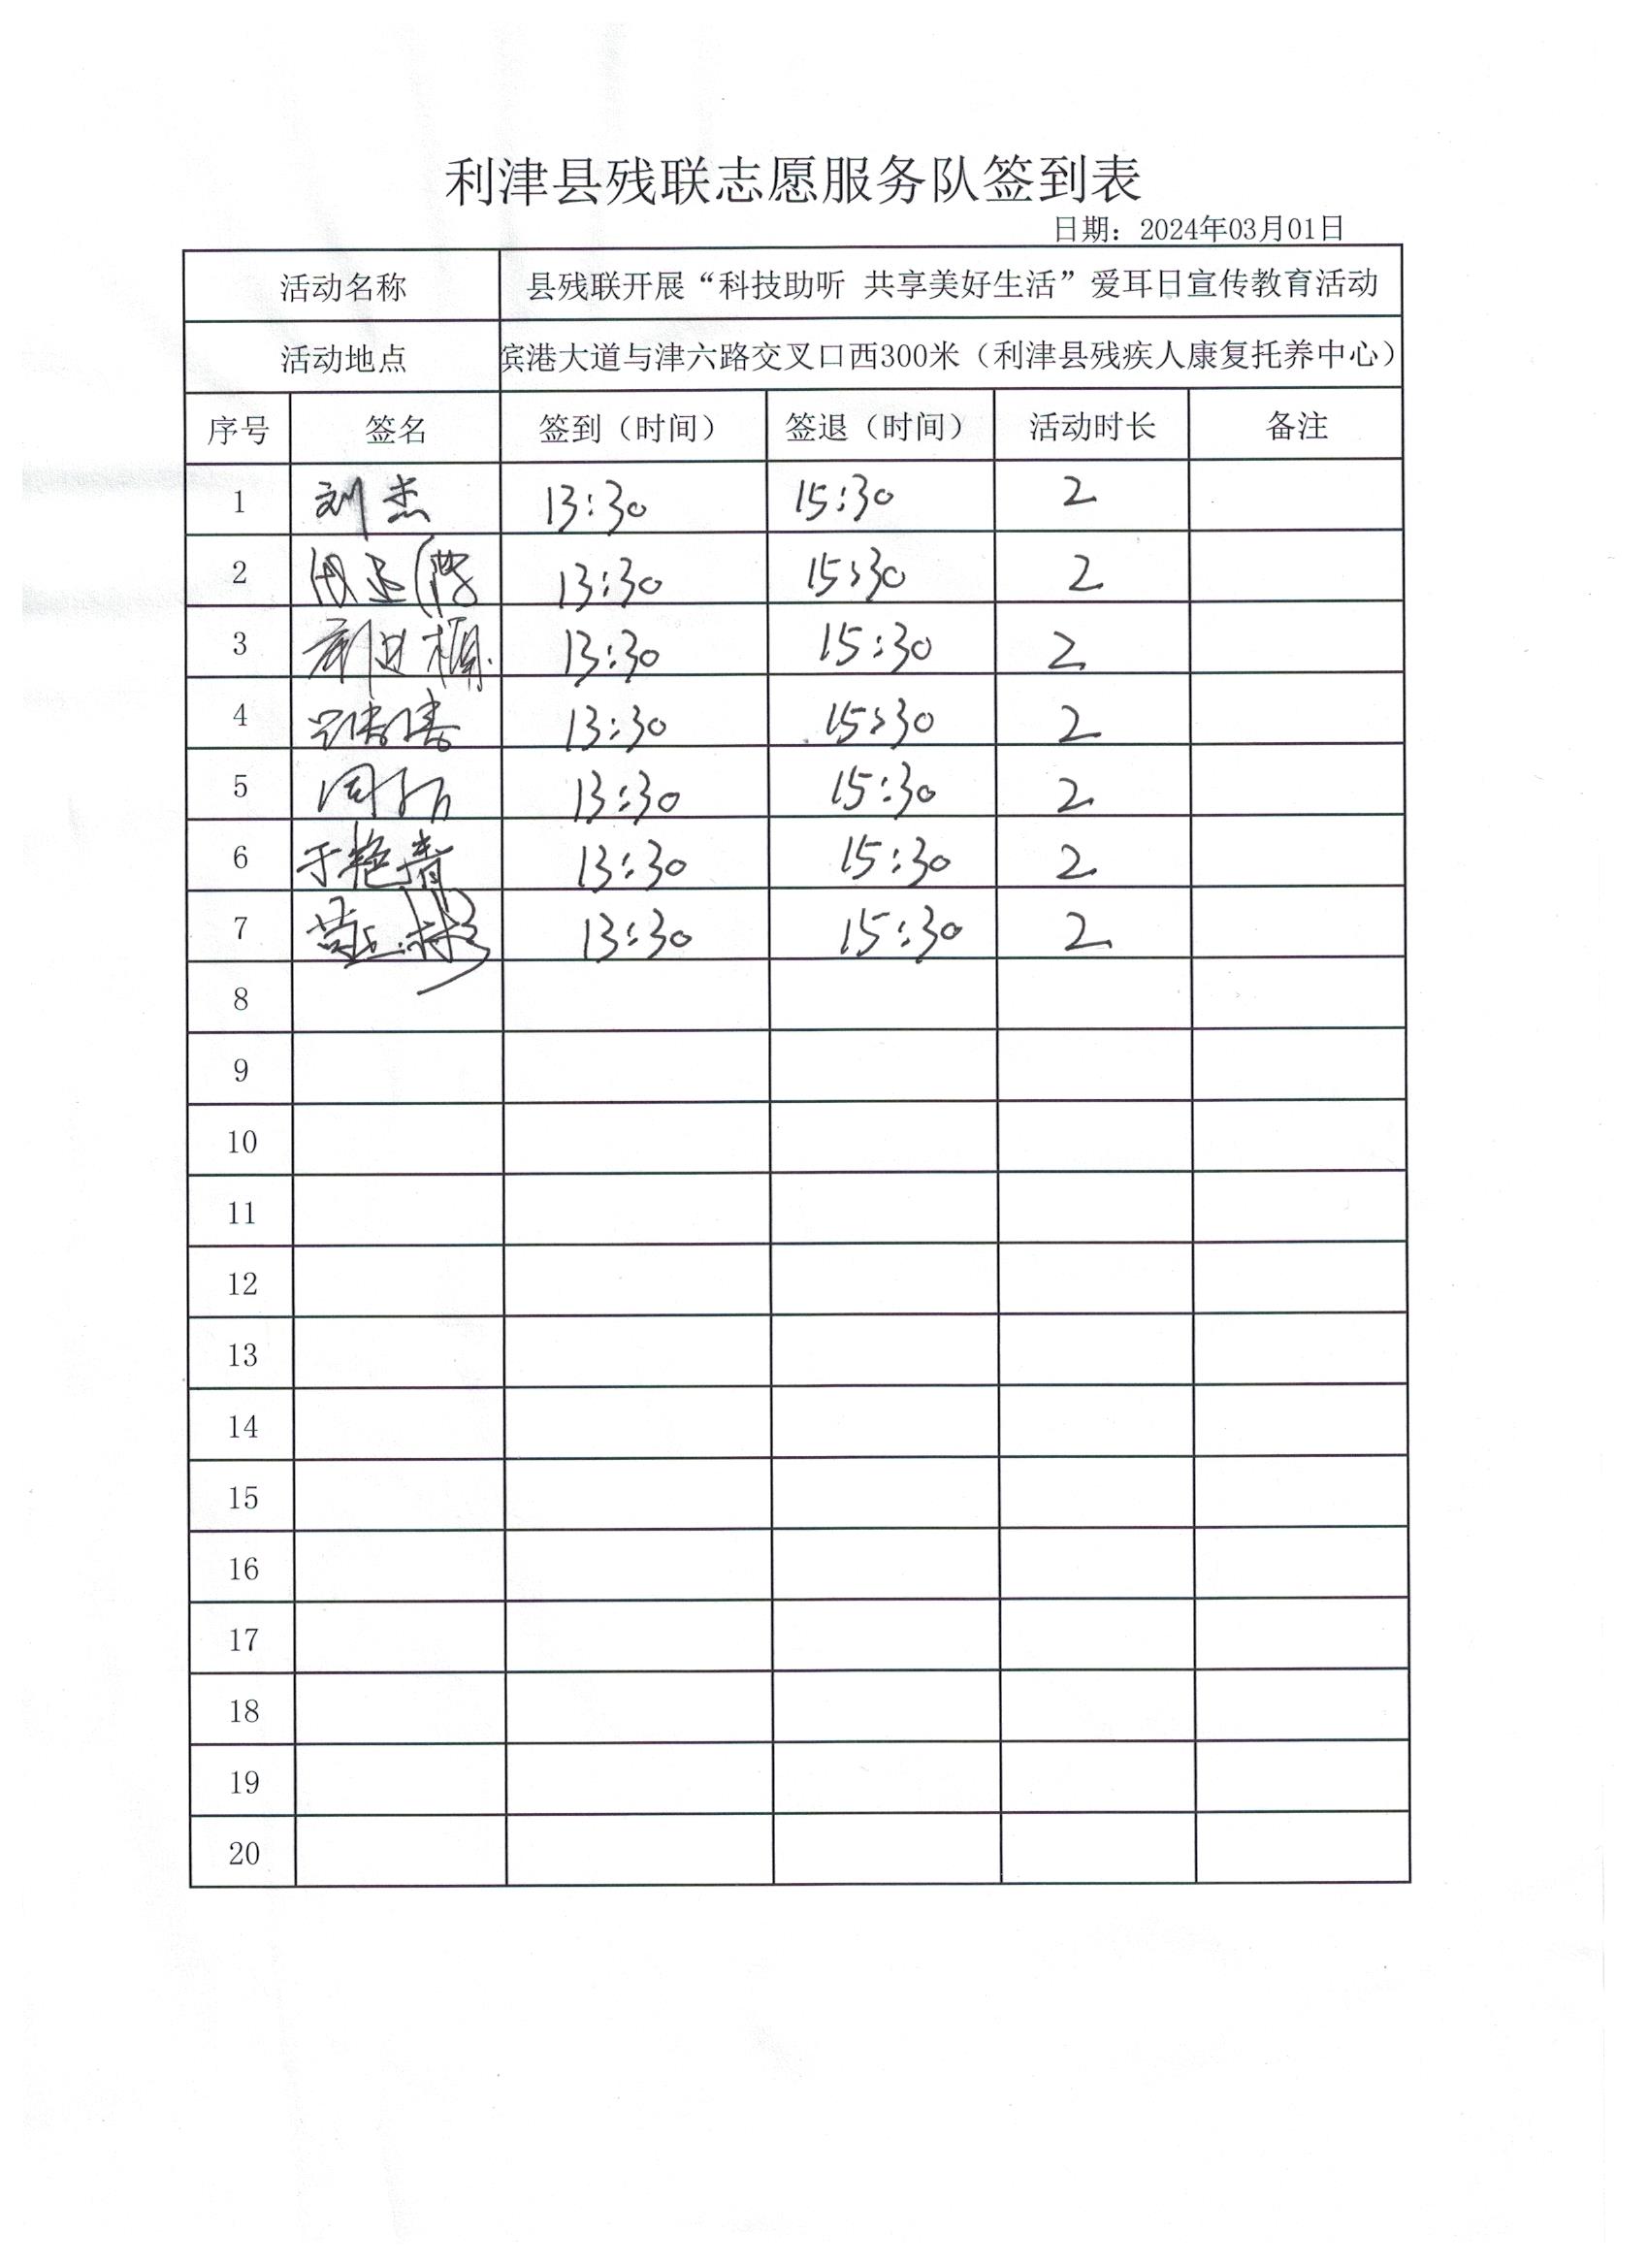 利津县残联志愿服务队签到表
日期：2024年03月01日
活动名称 县残联开展“科技助听 共享美好生活”爱耳日宣传教育活动
活动地点 滨港大道与津六路交叉口西300米（利津县残疾人康复托养中心）
序号 签名 签到（时间） 签退（时间） 活动时长 备注
1 刘杰 13:30 15:30 2
2 13:30 15:30 2
3 13:30 15:30 2
4 13:30 15:30 2
5 13:30 15:30 2
6 于艳青 13:30 15:30 2
7 13:30 15:30 2
8
9
10
11
12
13
14
15
16
17
18
19
20